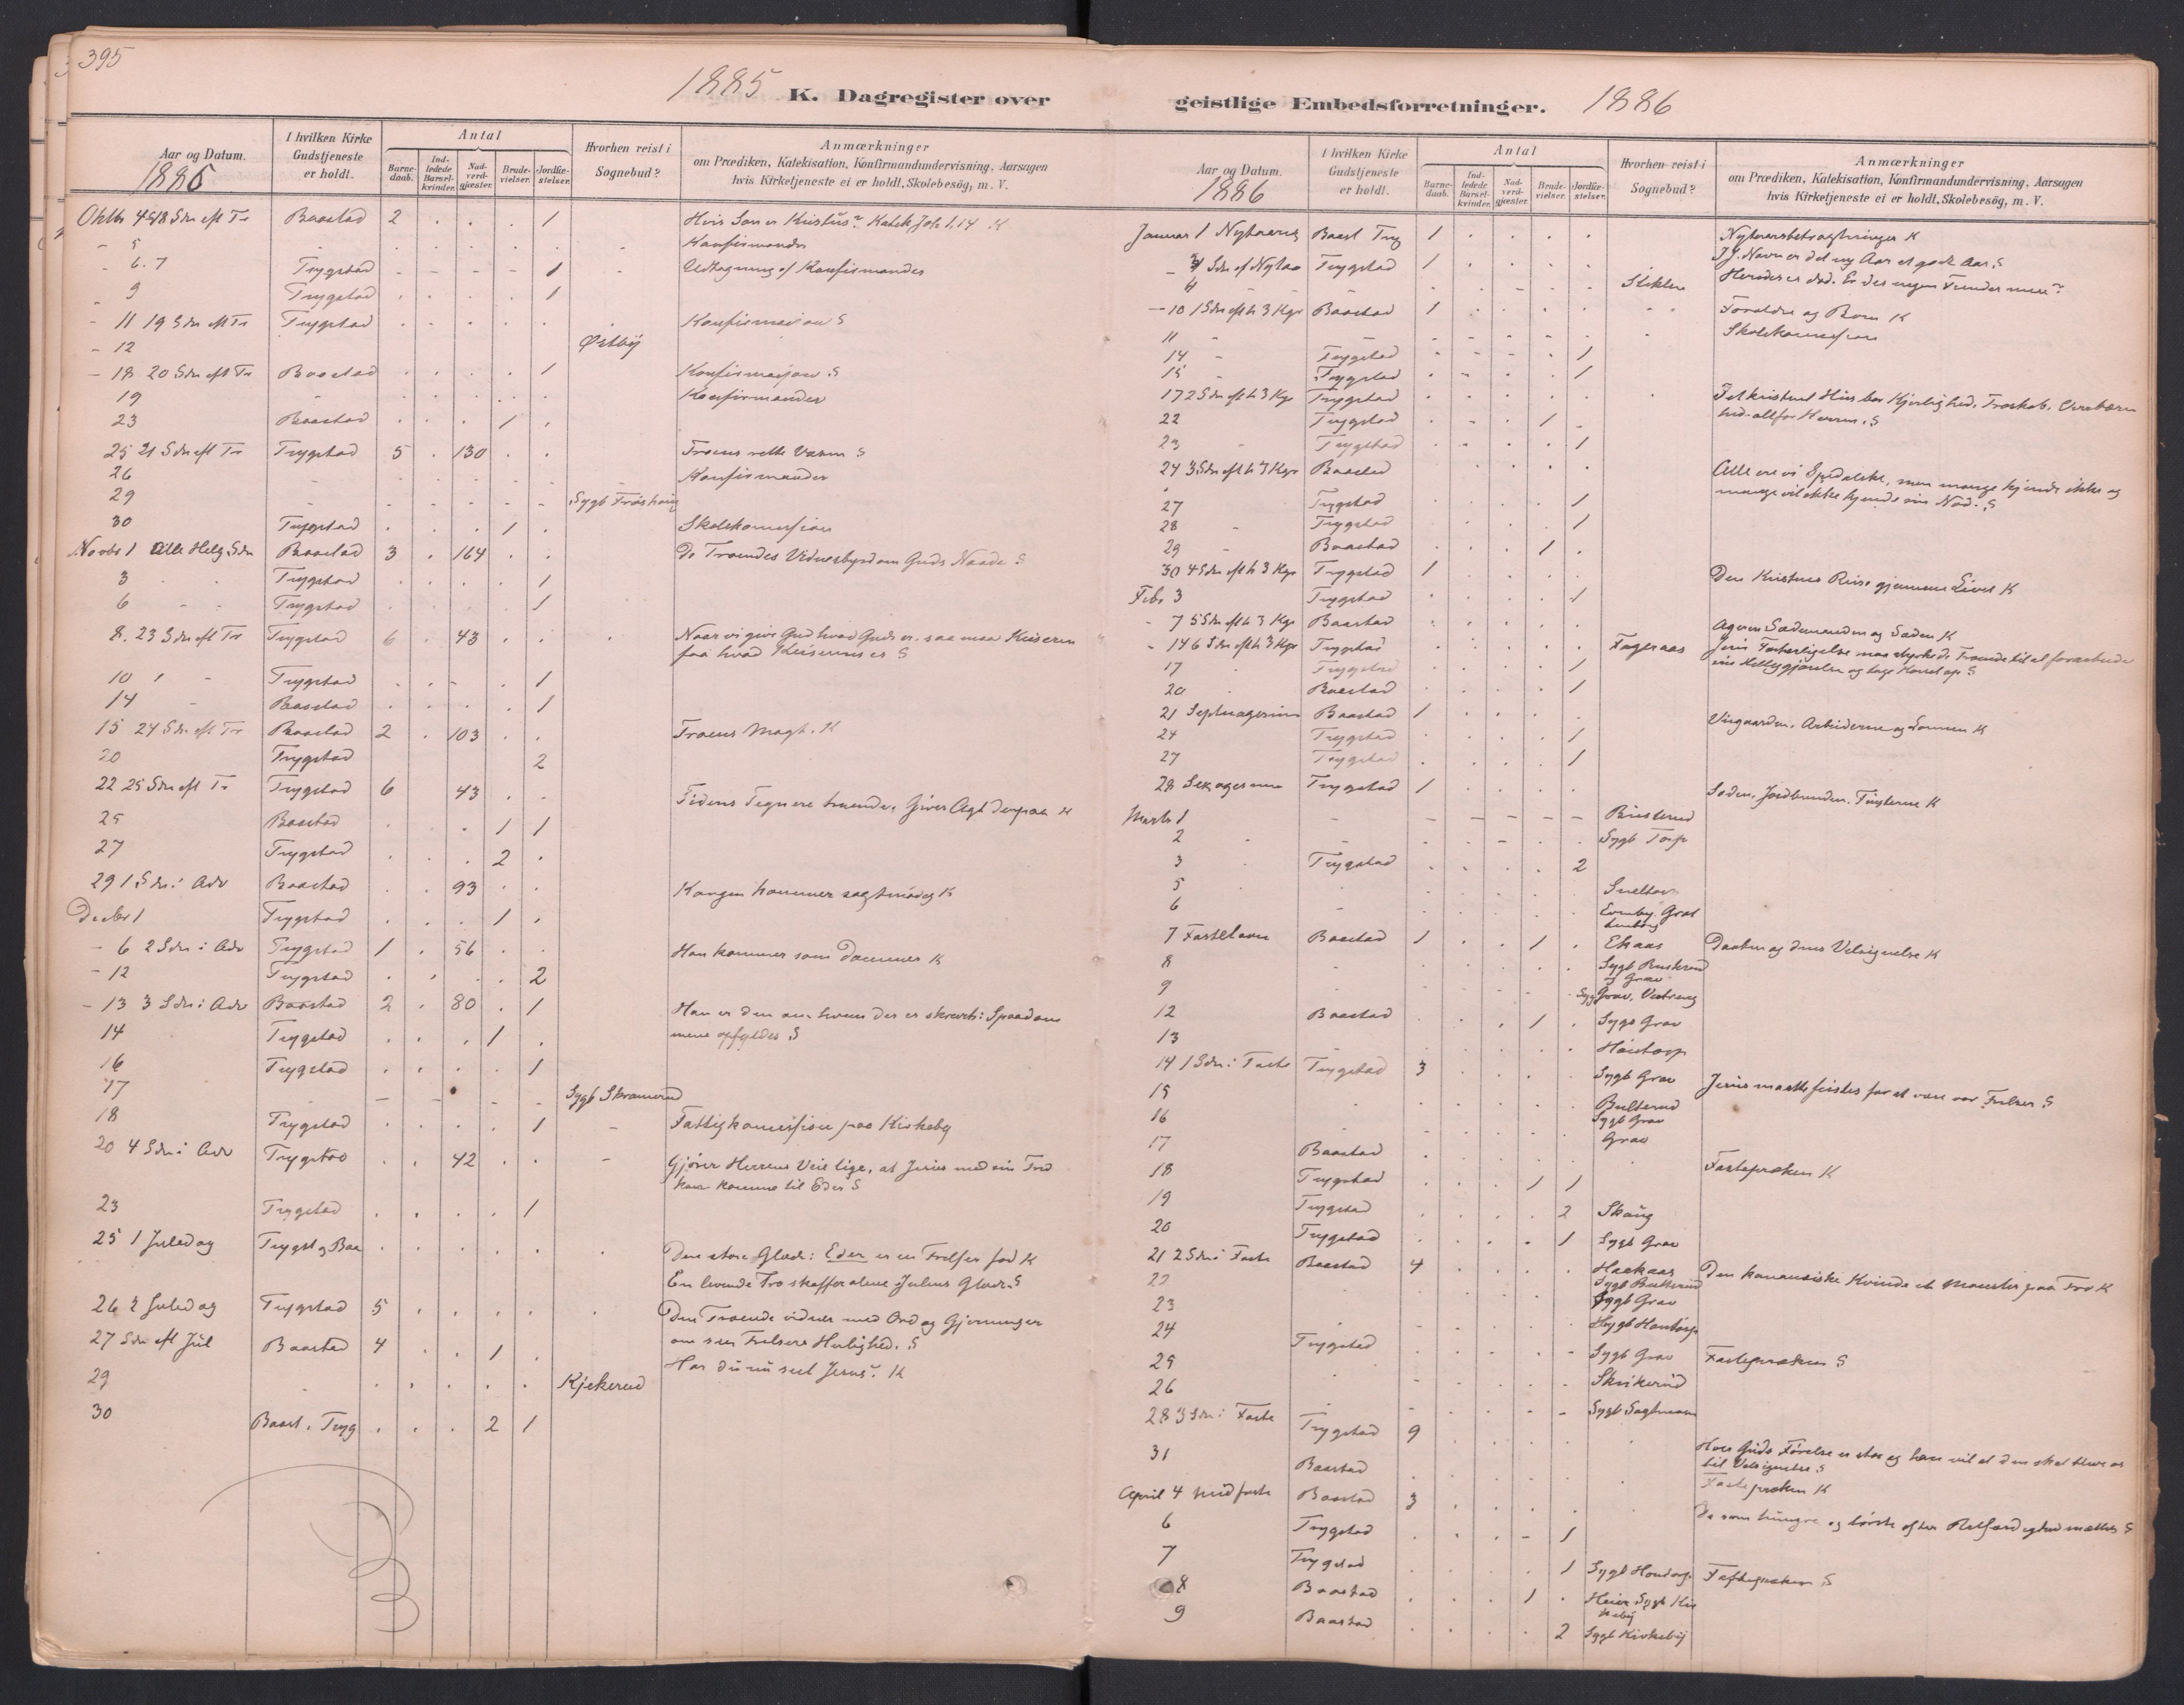 395
1885 K. Dagregister over
Aar og Datum.
I hvilken Kirke Gudstjeneste er holdt.
Antal
Barne-daab.
Ind-ledede Barsel-kvinder.
Nad-verd-gjæster.
Brude-vielser.
Jordfæ-stelser.
Hvorhen reist i Sognebud?
Anmærkninger
om Prædiken, Katekisation, Konfirmandundervisning, Aarsagen
hvis Kirketjeneste ei er holdt, Skolebesög, m. V.
1885
Oktbr 4 18 Sdn eft Tr Baastad 2 . . . 1 Hvis Søn er Kristus? Katek. Joh 1.14 K
- 5 Konfirmander
- 6. 7 Trygstad - - - - 1 Udtagning af Konfirmander
- 9 Trygstad . . . . 1
- 11 19 Sdn eft Tr Trygstad . . . . . Konfirmasjon S
- 12 Østby
- 18 20 Sdn eft Tr Baastad . . . . 1 Konfirmasjon S
19 Konfirmander
23 Baastad . . . 1 .
25 21 Sdn eft Tr Trygstad 5 . 130 . . Troens rette Væsen S
26 Konfirmander
29 Sygb Frøshaug
30 Trygstad . . . 1 . Skolekommission
Novbr 1 Alle Helg Sdn Baastad 3 . 164 . . De Troendes Vidnesbyrd om Guds Naade S
3 Trygstad . . . . 1
6 Trygstad . . . . 1
8. 23 Sdn eft Tr Trygstad 6 . 43 . . Naar vi give Gud hvad Guds er, saa maa Keiseren
faa hvad Keiserens er S
10 Trygstad . . . . 1
14 Baastad . . . . 1
15 24 Sdn eft Tr Baastad 2 . 103 . . Troens Magt. K
20 Trygstad 2
22 25 Sdn eft Tr Trygstad 6 43 . . Tidens Tegn ere truende, Giver Agt derpaa K
25 Baastad . . . 1 1
27 Trygstad . . . 2 .
29 1 Sdn i Adv Baastad . . 93 . . Kongen kommer sagtmodig K
Decbr 1 Trygstad . . . 1 .
- 6 2 Sdn i Adv Trygstad 1 . 56 . . Han kommer som Dommer K
- 12 Trygstad . . . . 2
- 13 3 Sdn i Adv Baastad 2 . 80 . 1 Han er den om hvem der er skrevet: Spaadom
mene opfyldes S
14 Trygstad . . . 1 .
16 Trygstad . . . . 1
17 Sygb Skramerud
18 Trygstad . . . . 1 Fattigkommission paa Kirkeby
20 4 Sdn i Adv Trygstad . . 42 . . Gjører Herrens Veie lige, at Jesus med sin Fred
kan komme til Eder S
23 Trygstad . . . . 1
25 1 Juledag Trygst og Baa . . . . . Den store Glæde: Eder er en Frelser fød K
En levende Tro skaffer alene Julens Glæde S
26 2 Juledag Trygstad 5 . . . . Den Troende vidner med Ord og Gjerninger
om sin Frelsers Herlighed. S
27 Sdn eft Jul Baastad 4 . . 1 . Har du nu seet Jesus? K
29 Kjekerud
30 Baast. Tryg . . . 2 1
geistlige Embedsforretninger. 1886
Aar og Datum.
I hvilken Kirke Gudstjeneste er holdt.
Antal
Barne-daab.
Ind-ledede Barsel-kvinder.
Nad-verd-gjæster.
Brude-vielser.
Jordfæ-stelser.
Hvorhen reist i Sognebud?
Anmærkninger
om Prædiken, Katekisation, Konfirmandundervisning, Aarsagen
hvis Kirketjeneste ei er holdt, Skolebesög, m. V.
1886
Januar 1 Nytaarsd Baast Tryg 1 . . . . Nytaarsbetragtninger K
I J. Navn er det ny Aar et godt Aar. S
- 3 Sdn ef Nytaar Trygstad 1 . . . . Herodes er død. Er der ingen Fiender mere?
4
- 10 1 Sdn eft h 3 Kgr Baastad 1 . . . . Forældre og Børn K
11 Skolekommission
14 Trygstad . . . . 1
15 Trygstad . . . . 1
17 2 Sdn eft h 3 Kgr Trygstad . . . . . Et kristent Hus bør Kjerlighed, Troskab,
hed, alt for Herren. S
22 Trygstad . . . 1 .
23 Trygstad . . . . 1
24 3 Sdn eft h 3 Kgr Baastad . . . . Alle ere vi Spedalske, men mange kjende ikke og
mange vil ikke kjende sin Nød. S
27 Trygstad . . . . 1
28 Trygstad . . . . 1
29 Baastad . . . 1 .
30 4 Sdn eft h 3 Kgr Trygstad 1 . . . . Den Kristnes Reise gjennem Livet K
Febr 3 Trygstad . . . . 1
- 7 5 Sdn eft h 3 Kgr Baastad . . . . . Ageren Sædemanden og Sæden K
- 14 6 Sdn eft h 3 Kgr Trygstad . . . . . Fageraas Jesu Forherligelse maa styrke de Troende til at
sin Helliggjørelse og tage Korset op S
17 Trygstad . . . . 1
20 Baastad . . . . 1
21 Septuagesima Baastad 1 . . . . Vingaarden. Arbeiderne og Lønnen K
24 Trygstad . . . . 1
27 Trygstad . . . . 1
28 Sexagesima Trygstad 1 . . . . Sæden, Jordbunden, Frugterne K
Marts 1 Risterud
2 Sygb Torp
3 Trygstad . . . . 2
5
6
7 Fastelavn Baastad 1 . . 1 . Ekaas Daaben og dens Velsignelse K
8 og Grav
9 Sygb Grav,
12 Baastad . . . 1 . Sygb Grav
13 Hontorp
14 1 Sdn i Faste Trygstad 3 . . . . Sygb Grav Jesus maatte fristes for at være vor Frelser S
15 Bulterud
16 Sygb Grav
17 Baastad Grav Fasteprædken K
18 Trygstad . . . 1 1
19 Trygstad . . . . 2 Skaug
20 Trygstad . . . . 1 Sygb Grav
21 2 Sdn i Faste Baastad 4 . . . . Haekaas Den kananæiske Kvinde et Mønster paa Tro K
22 Sygb Bulterud
23 Sygb Grav
24 Trygstad Sygb Hontorp
25 Sygb Grav Fasteprædken S
26 Skikerud
28 3 Sdn i Faste Trygstad 9
31 Baastad til Velsignelse S
Fasteprædken K
April 4 Midfaste Baastad 3 . . . . De som hungre og tørste efter Retfærdighed mættes S
6 Trygstad . . . - 1
7 Trygstad . . . . 1 Sygb Hontorp Fasteprædken S
8 Baastad . . . 1 . Heier Sygb Kir
keby
9 Baastad . . . . 2 Sygb Kirkeby